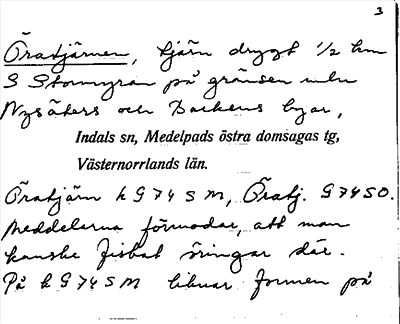 3
Öratjärnen, tjärn drygt 1/2 km
S Stormyran på gränsen mln
Nysäters och Backens byar,
Indals sn, Medelpads östra domsagas tg,
Västernorrlands län.
Öratjärn k G 74 S M, Öratj. G 74 S O.
Meddelarna förmodar, att man
kanske fiskat öringar där.
På k G 74 S M liknar formen på